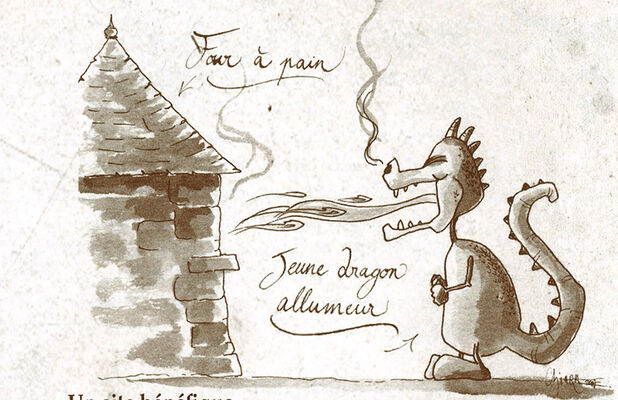 Four à pain
Jeune dragon
allumeur
Un site bénéfique